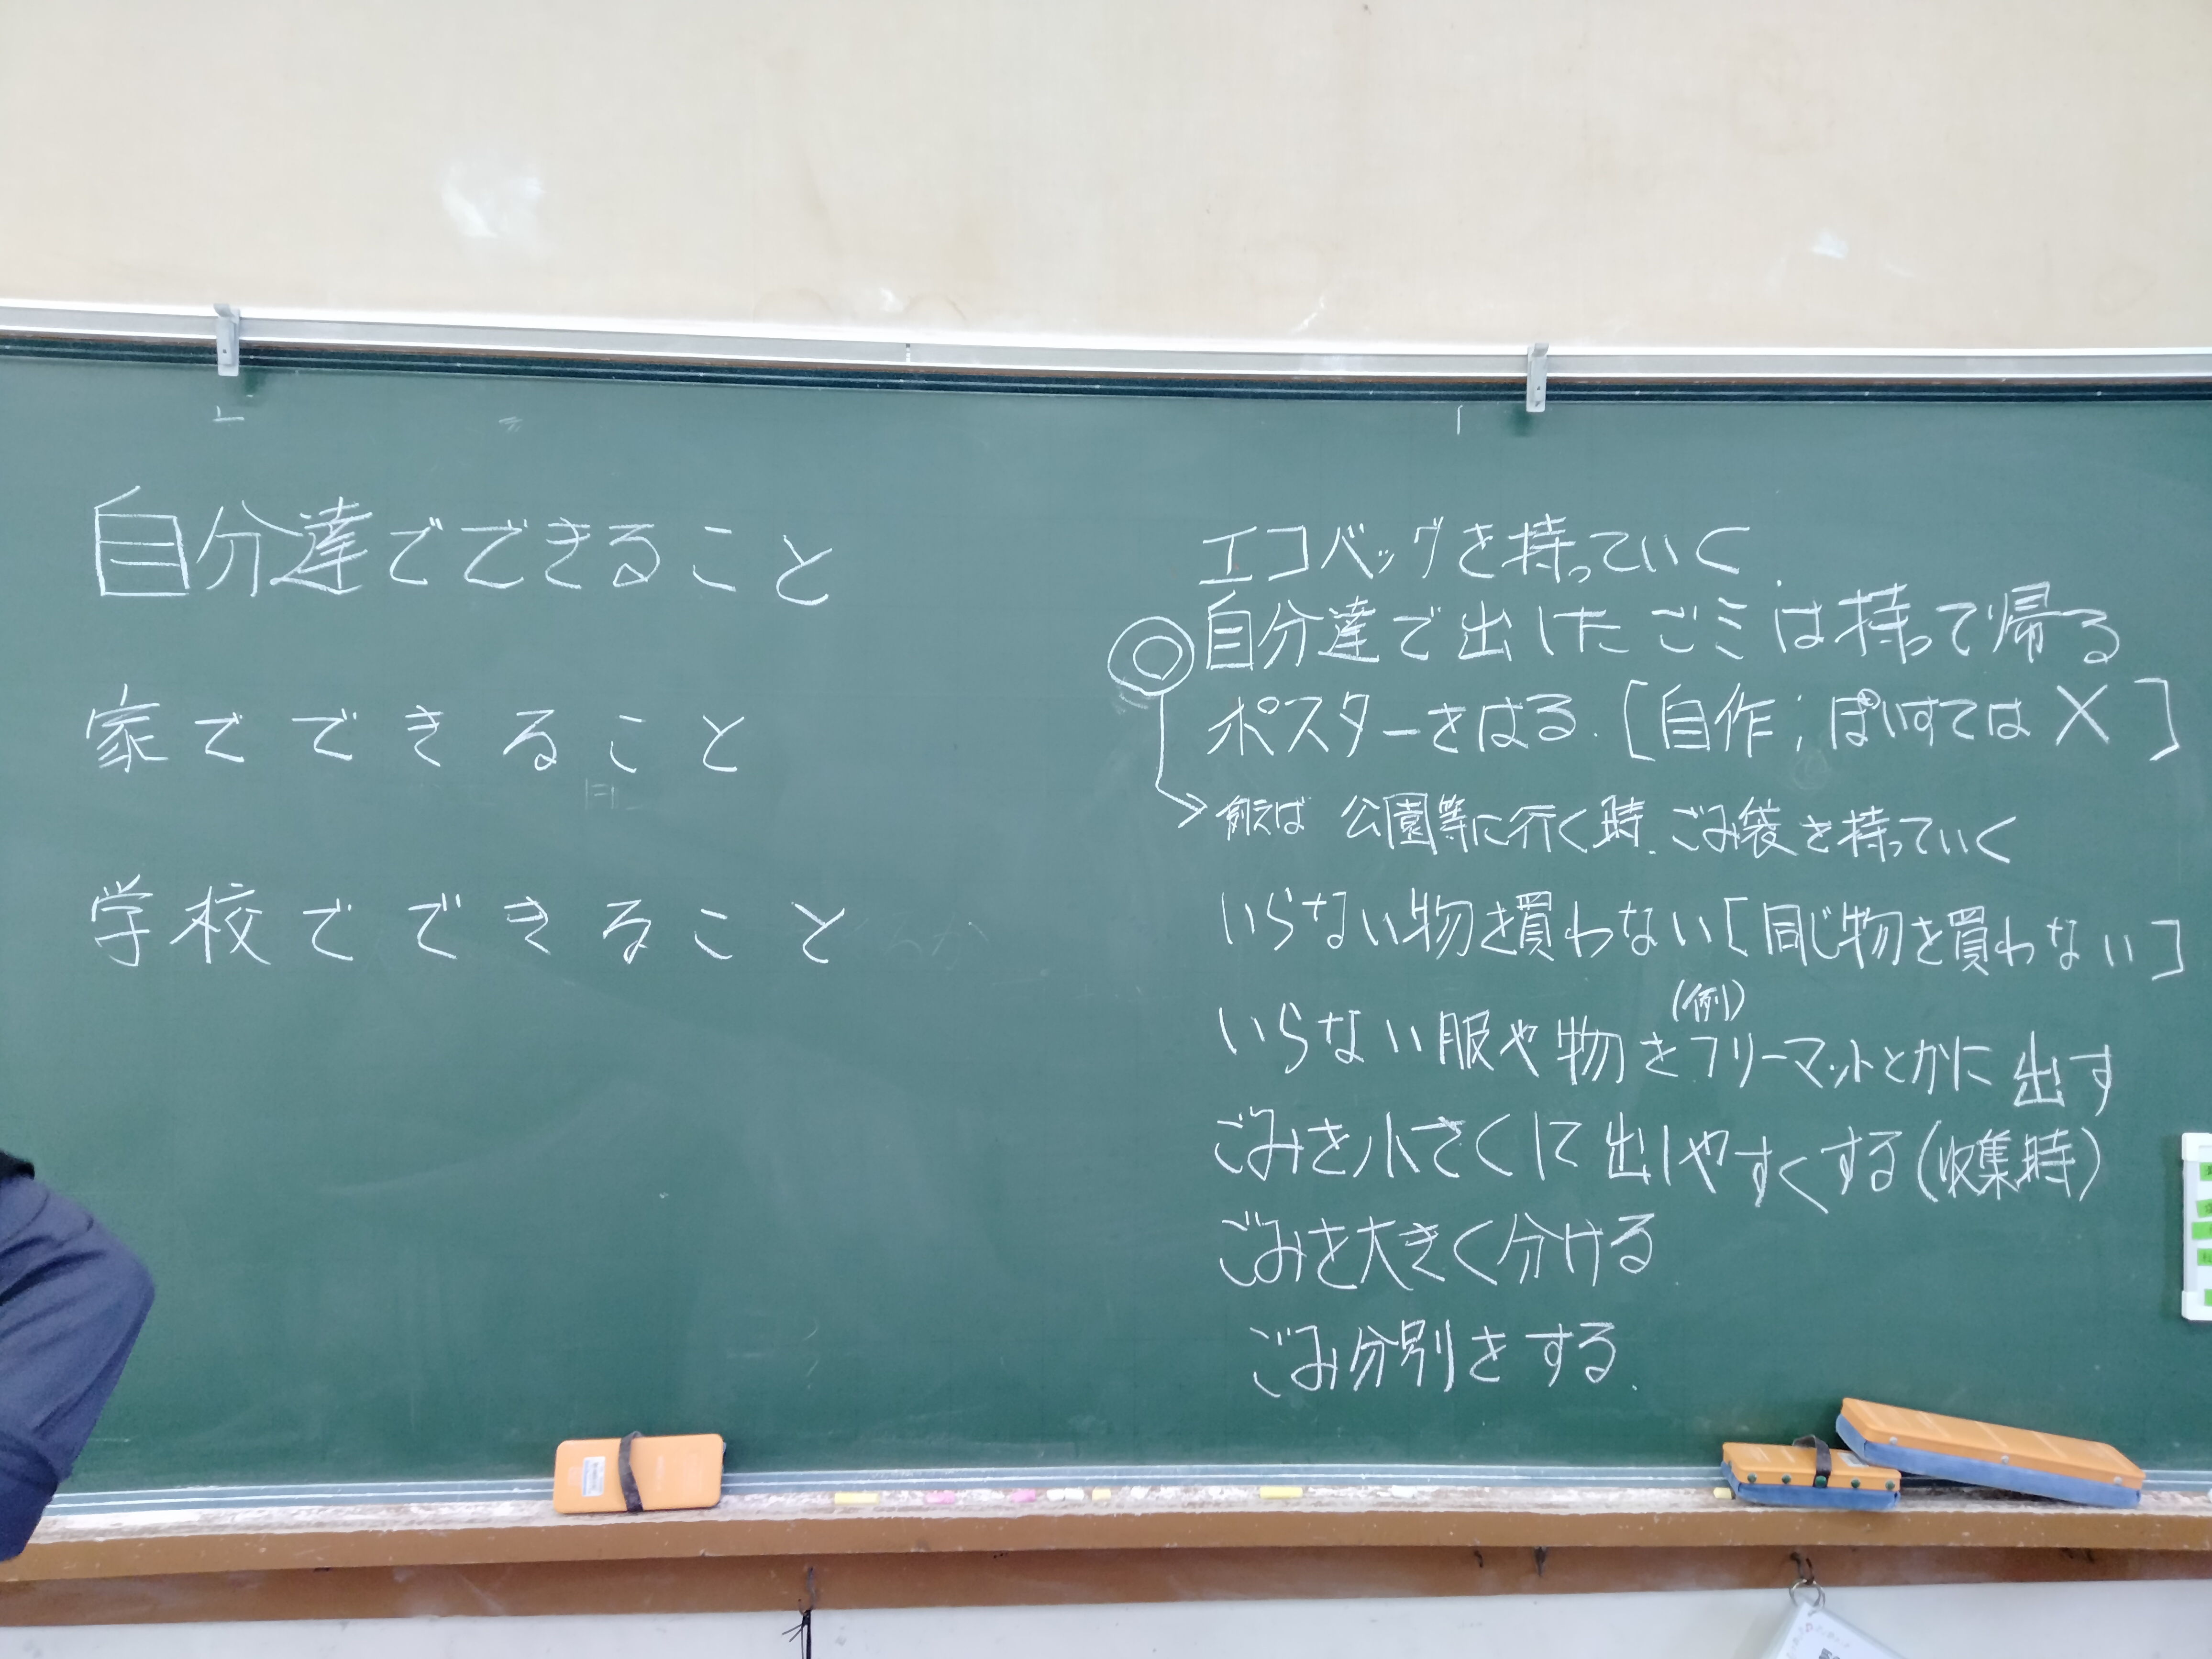 自分達でできること
家でできること
学校でできること
エコバッグを持っていく
◎自分達で出したごミは持って帰る
ポスターをはる.[自作;ぽいすては×]
→例えば 公園等に行く時、ごみ袋を持っていく
いらない物を買わない[同じ物を買わない]
(例)
いらない服や物をフリーマットとかに出す
ごみを小さくして出しやすくする(収集時)
ごみを大きく分ける
ごみ分別をする.